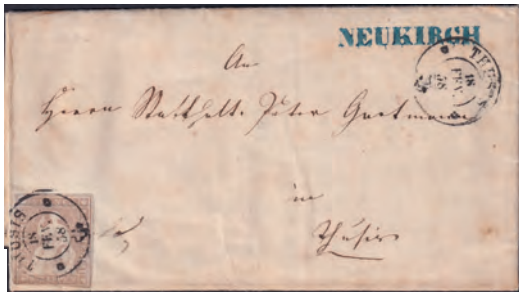 NEUKIRCH
THUSIS
18
FEV.
58
An
Herrn Statthalt. Peter Gartmann
in
Thusis
THUSIS
18
FEV.
58